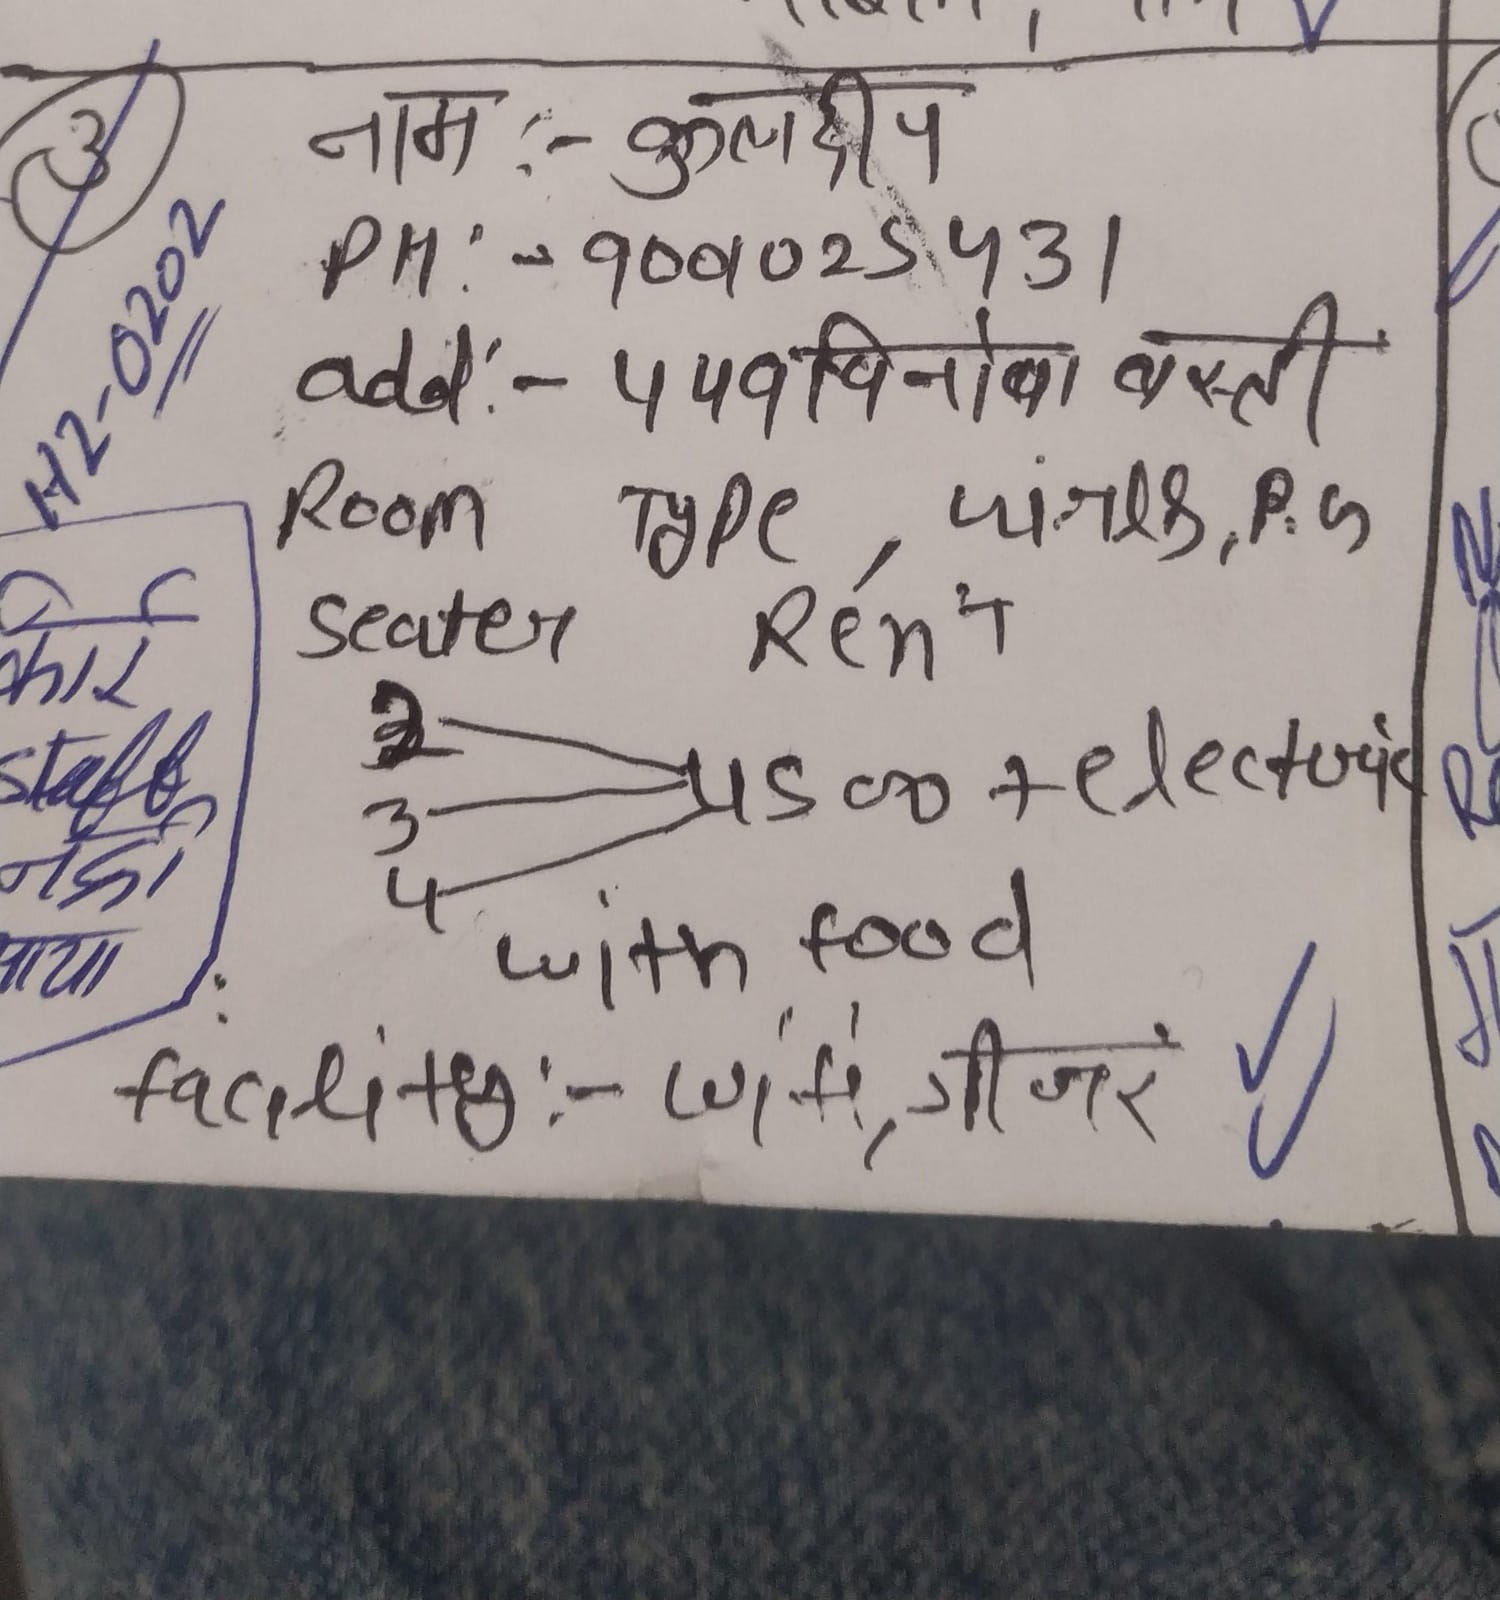 3
H2-0202
नाम :- कुलदीप
PH :- 9009025431
add :- 449 विनोबा बस्ती
Room Type, P.G
Seater Rent
2
3
4
4500 + electoric
with food
facility :- wifi, गीजर
कार
staff
नही
आया